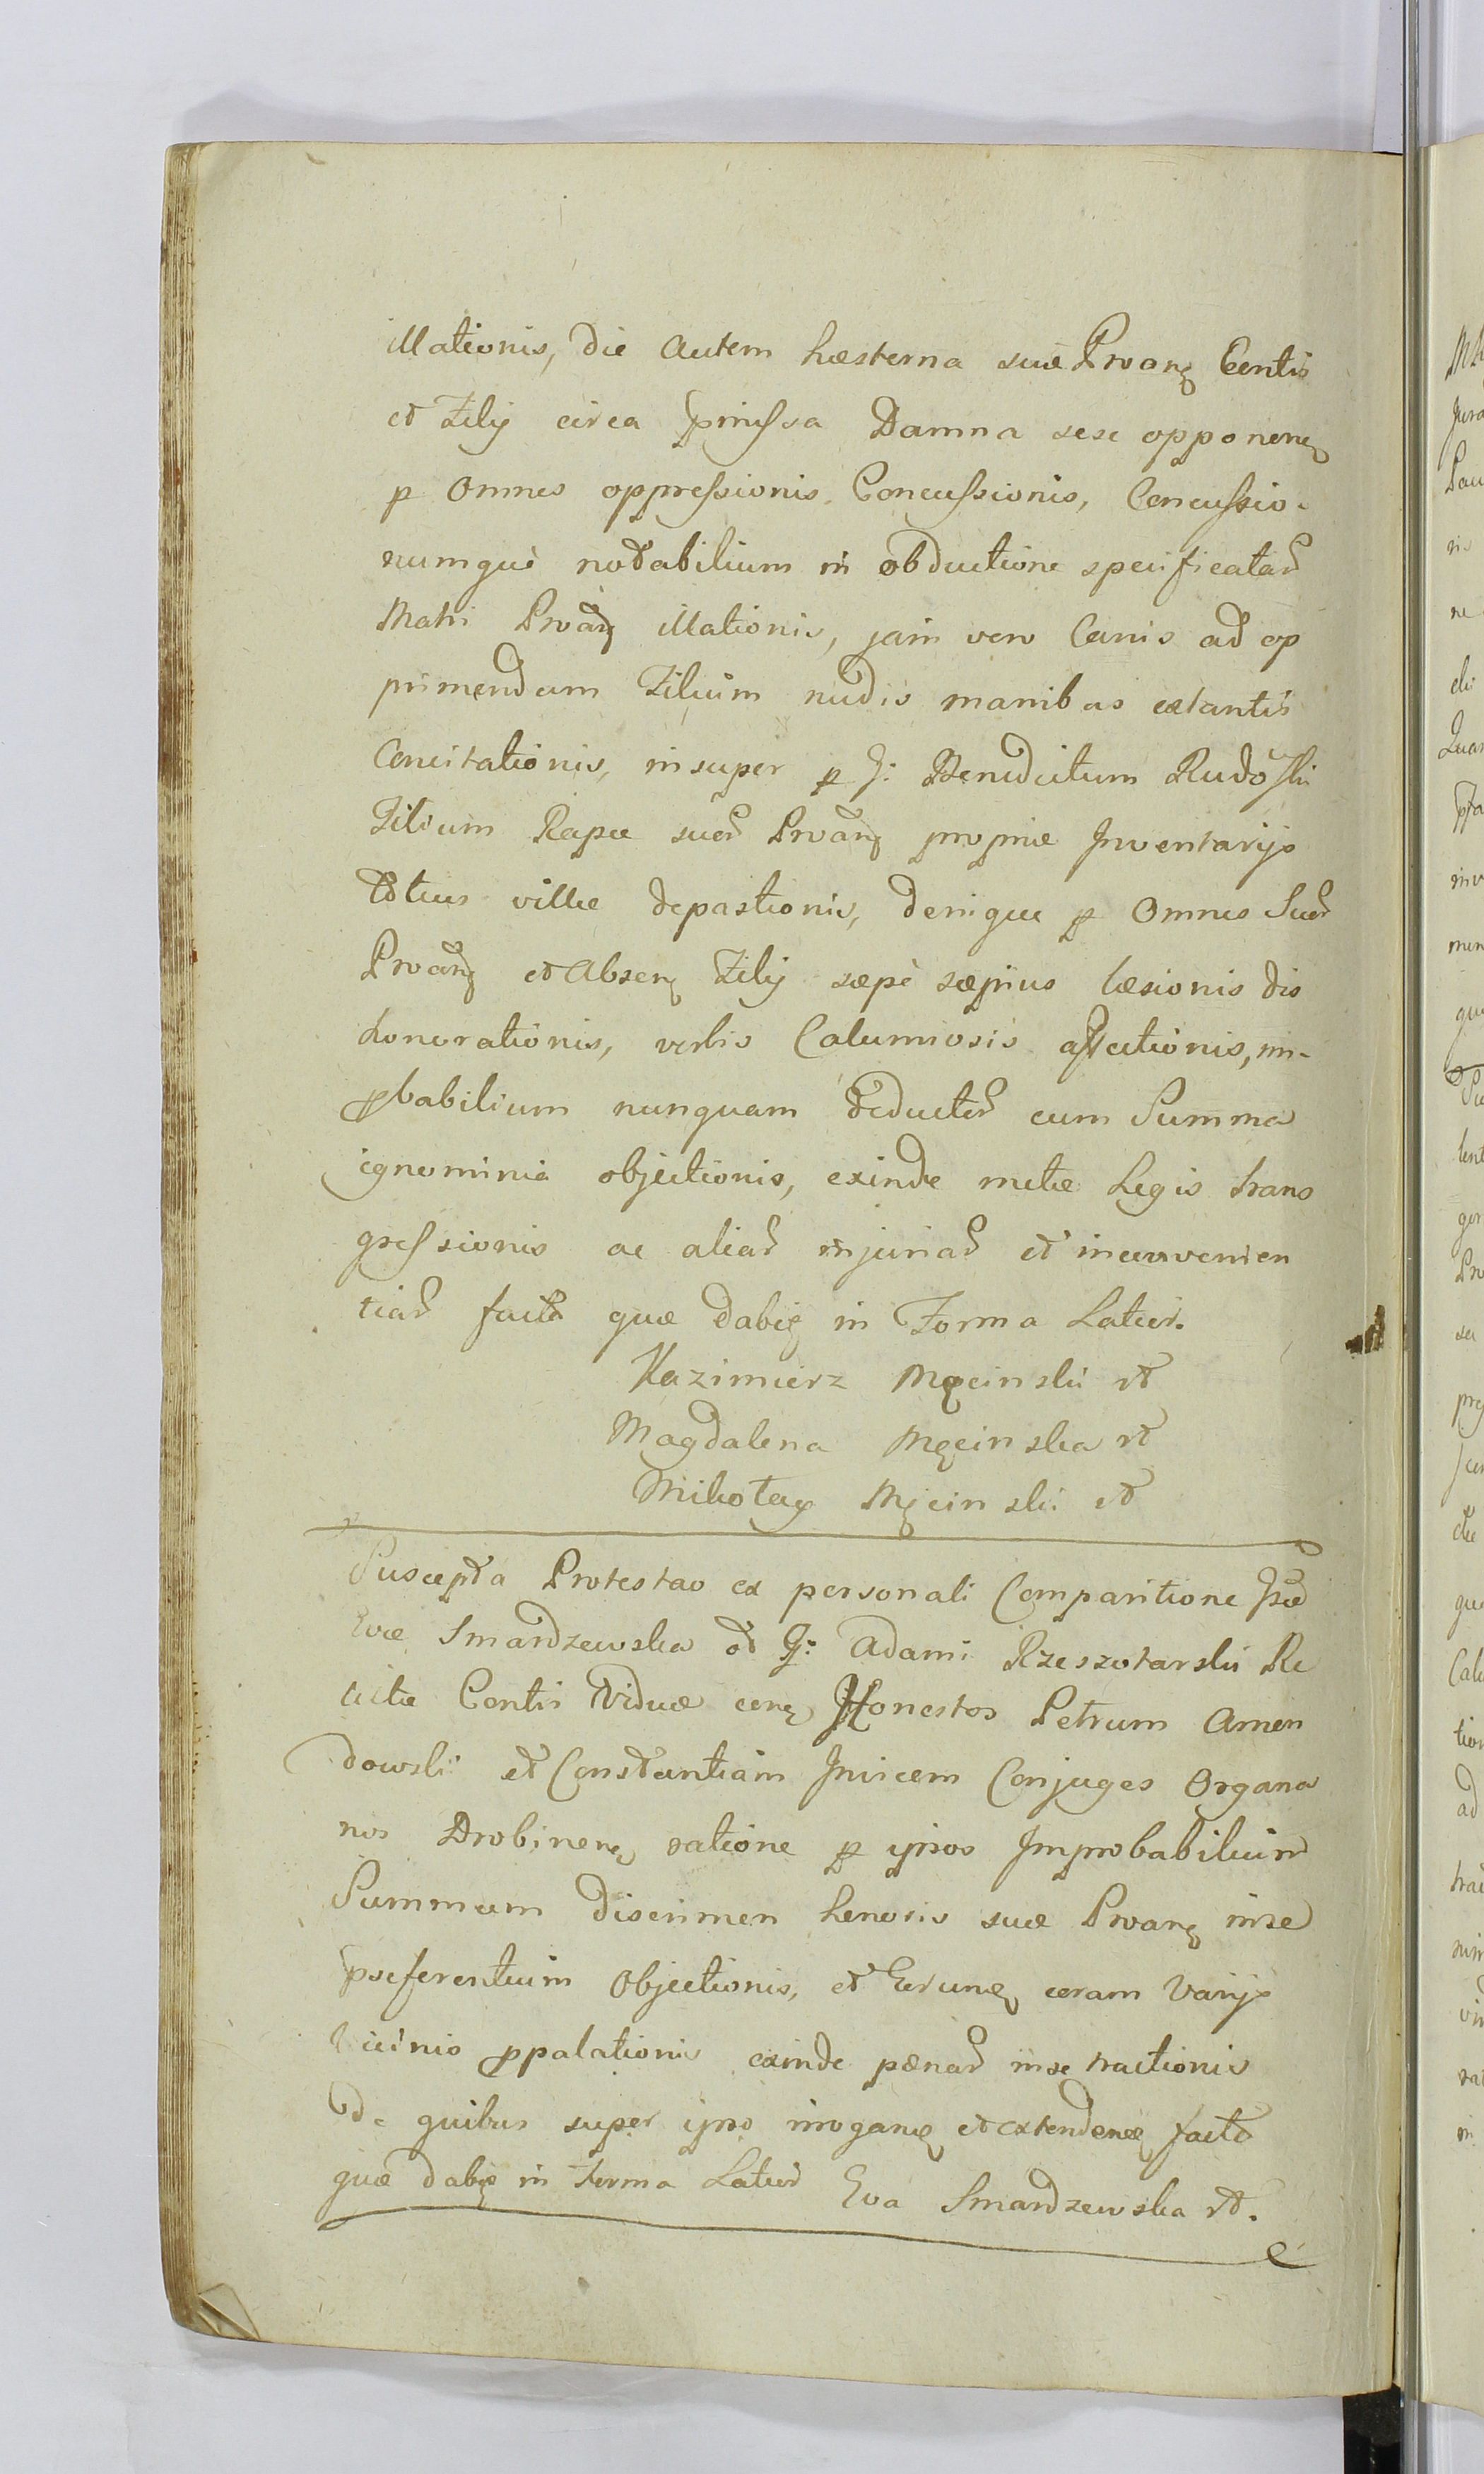 illationis, die autem hæsterna suæ Proanę Contis
et Filij circa pmissa Damna sese opponenę
p omnes oppressionis Concussionis, Concussio-
numquè notabilium in obductione specificatar
Matri Proanę illationis, jam vero Canis ad op
primendum Filium nudis manibus extantis
Concitationis, insuper p G: Benedictum Rudoski
Filium Rapæ suar Proanę propriæ Inventarijs
totius villæ depastionis, denique p omnes Suar
Proanę et Absenę Filij sæpè sæpius læsionis dis
honorationis, verbis Calumiosis affectionis, im-
pbabilium nunquam deductar cum Summa
ignominia objectionis, exinde metæ Legis trans
gressionis ac aliar injuriar et inconvenien
tiar facta quæ dabię in Forma Latior.
Kazimierz Męcinski rt
Magdalena Męcinska rt
Mikołay Męcinski rt
Suscepta Protestao ex personali Comparitione
Evæ Smardzewska ot G: Adami Rzeszotarski Re
lictæ Contis Viduæ conę Honestos Petrum Amen
dowski et Constantiam Invicem Conjuges Organa
nos Drobinenę ratione p ipsos Improbabilium
Summum discrimen honoris suæ Proanę in se
pseferentium Objectionis, et Eorunę coram Varijs
Vicinis ppalationis exinde pænar in se tractionis
De quibus super ipso irroganę et extendenę facta
quæ dabię in Forma Latior Eva Smardzewska rt.